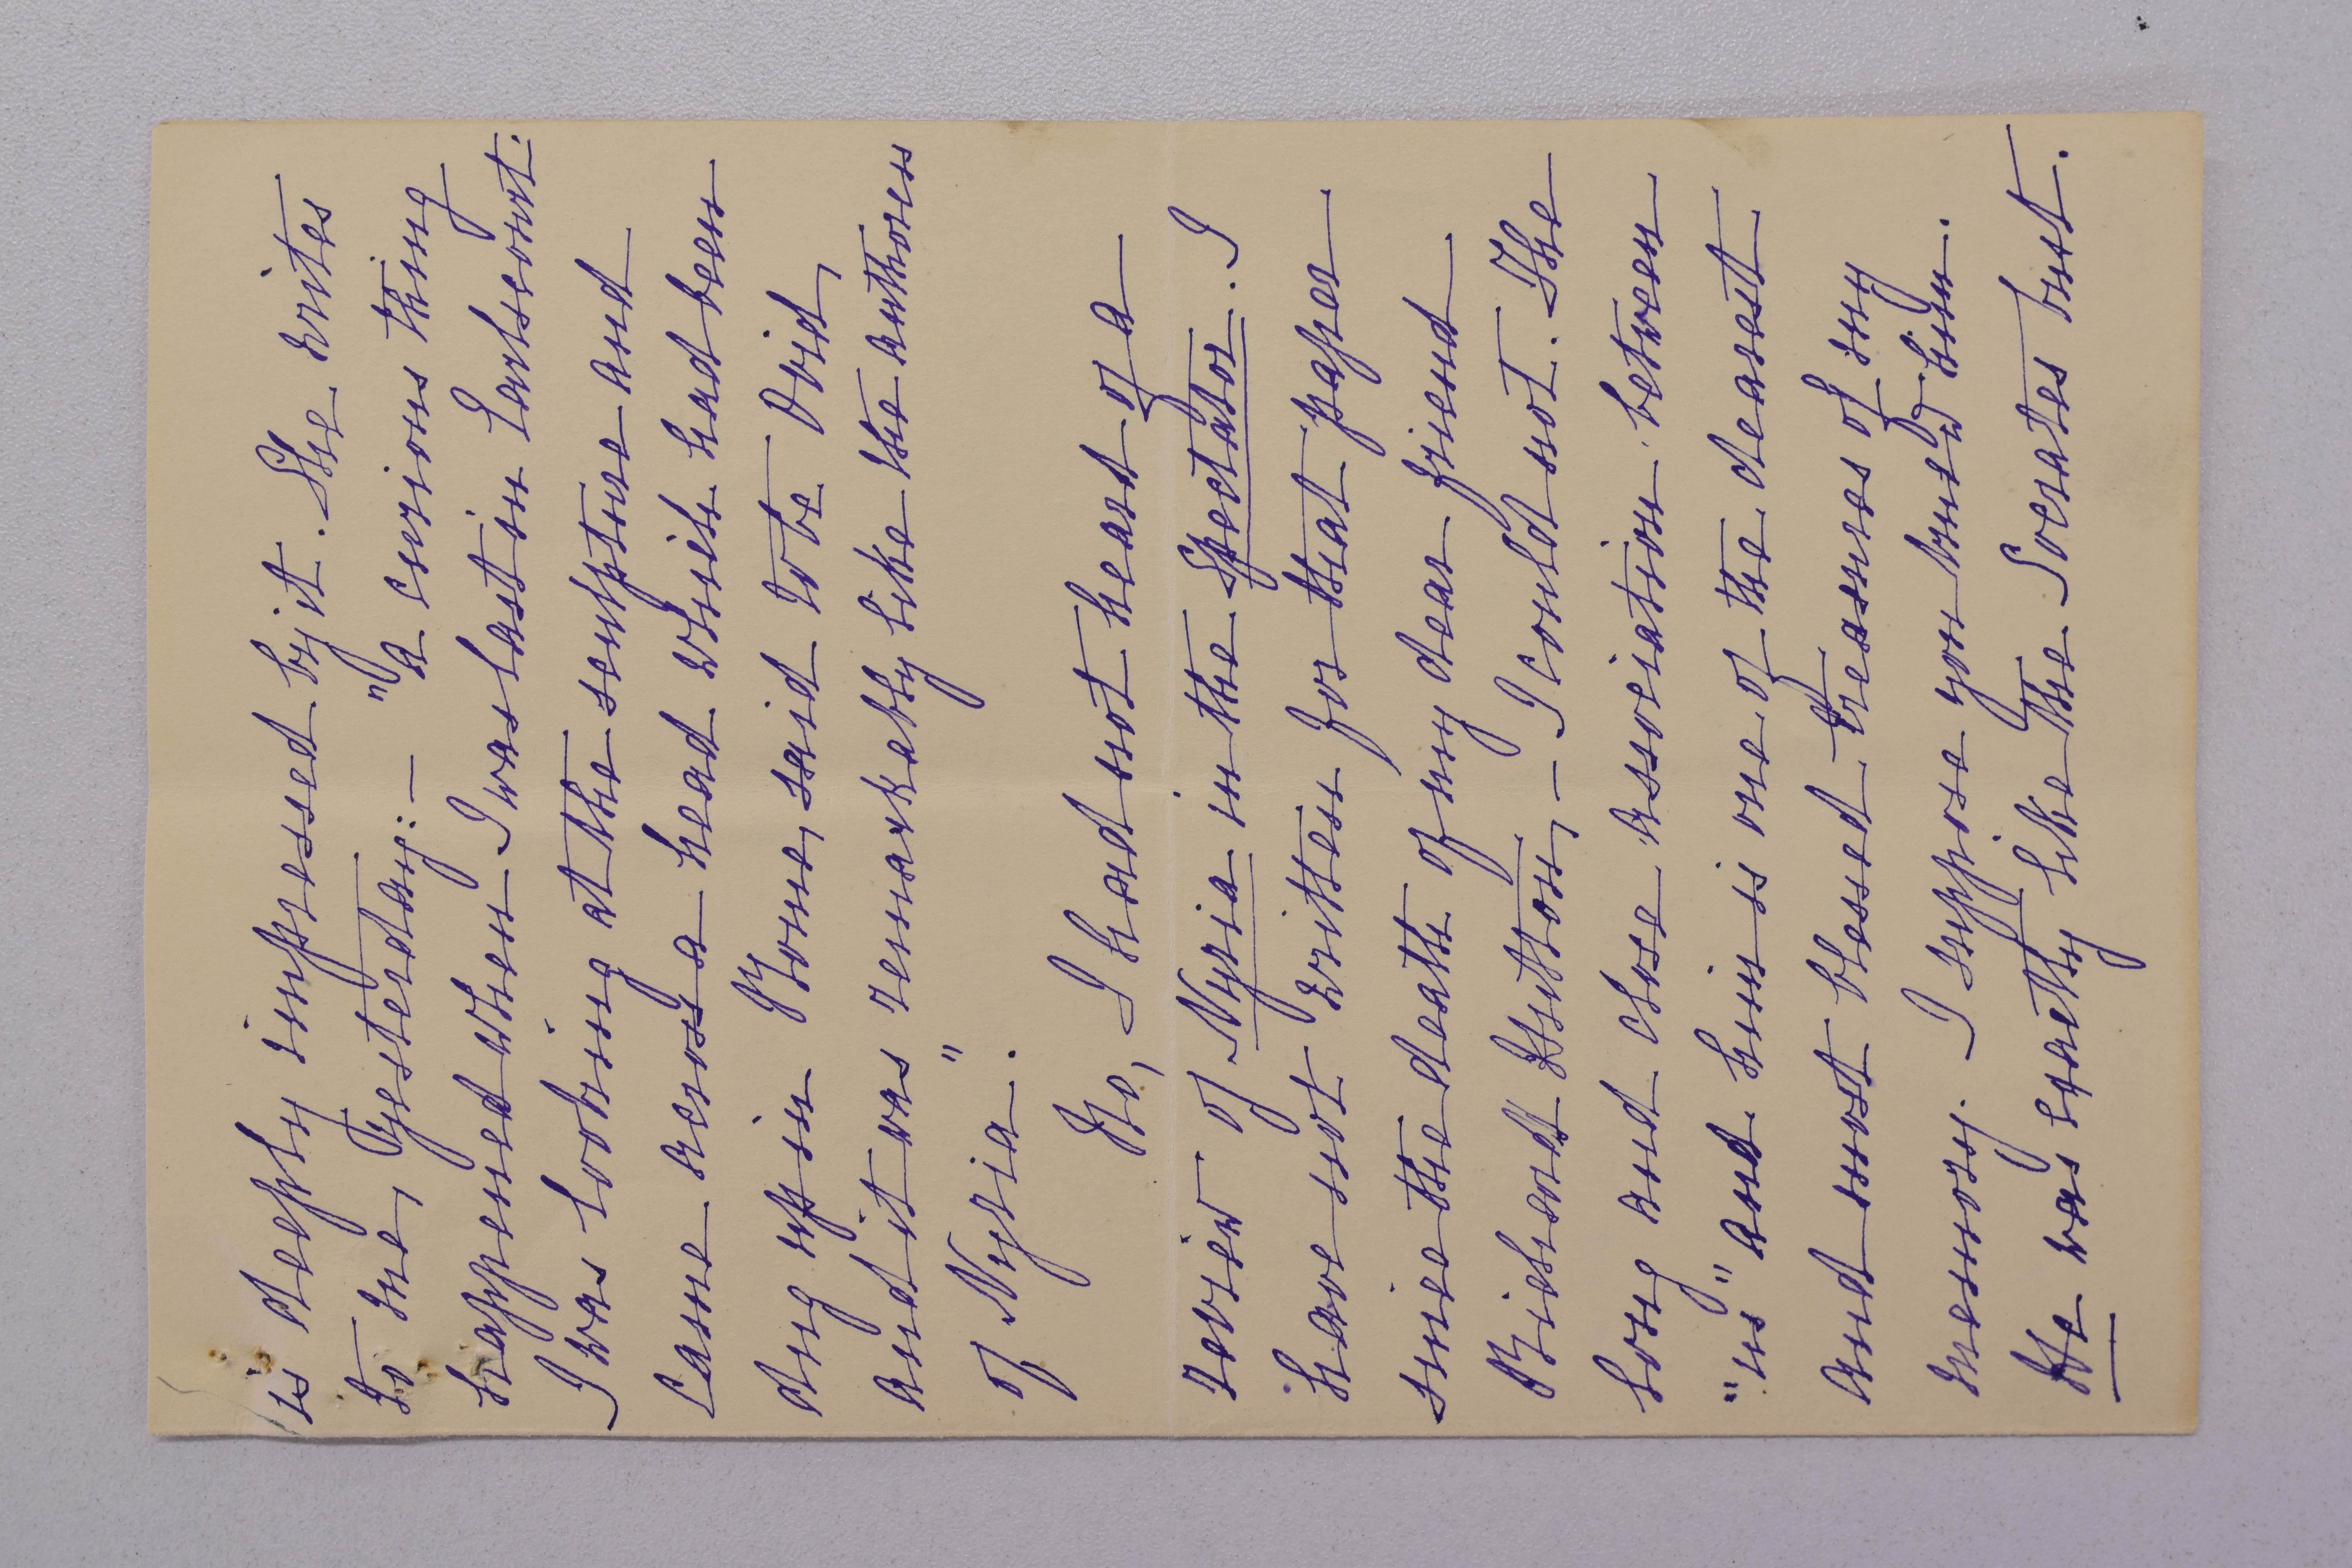 is deeply impressed by it. She writes
to me, yesterday: — "a curious thing
happened when I was last in Earlscourt:
I was looking at the sculpture and
came across a head which had been
dug up in Rome, said to be Ovid,
and it was remarkably like the authoress
of Nyria."
No, I had not heard of a
review of Nyria in the Spectator. I
have not written for that paper
since the death of my dear friend
Richard Hutton, — I could not. The
long and close association between
"us" and him is one of the dearest
and most blessed treasures of my
memory. I suppose you knew him.
He was exactly like the Socrates bust.